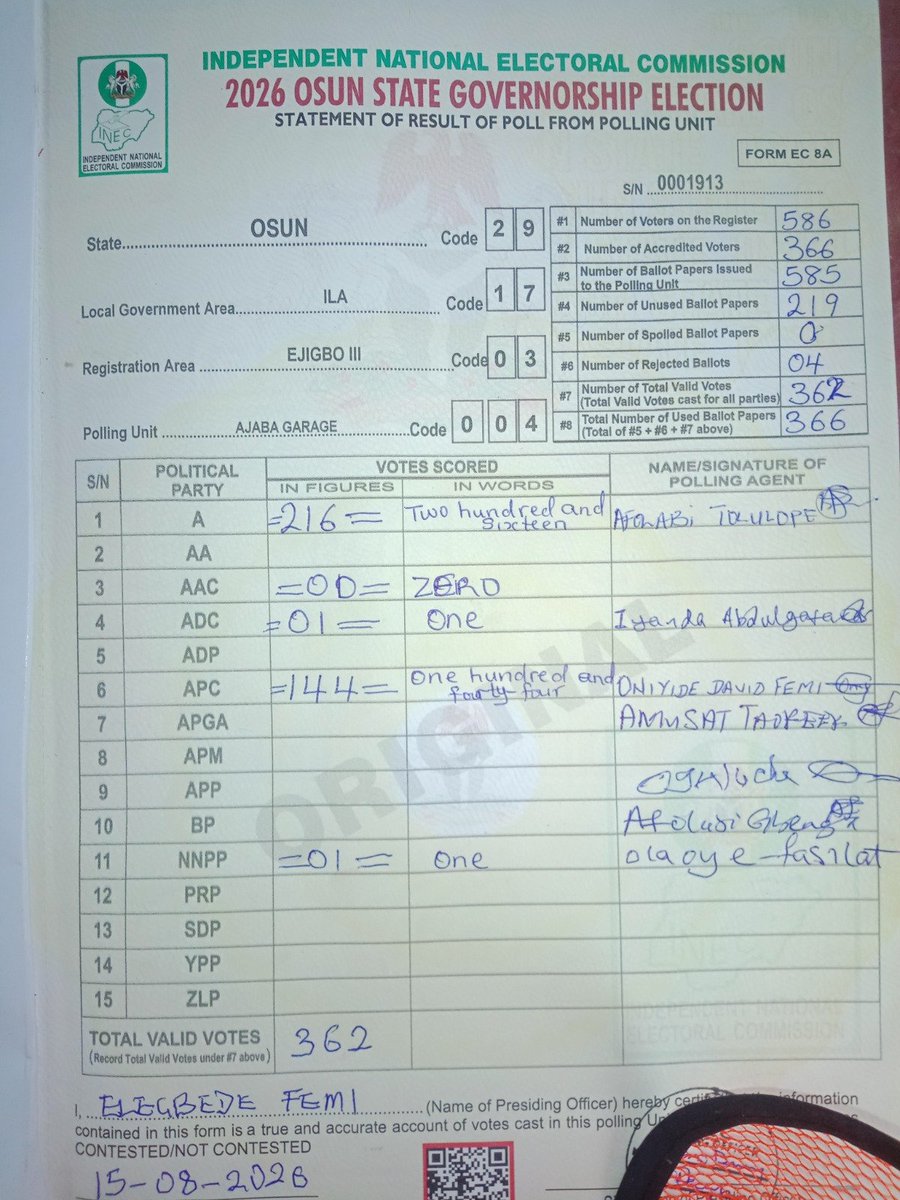 INEC
INDEPENDENT NATIONAL
ELECTORAL COMMISSION
INDEPENDENT NATIONAL ELECTORAL COMMISSION
2026 OSUN STATE GOVERNORSHIP ELECTION
STATEMENT OF RESULT OF POLL FROM POLLING UNIT
FORM EC 8A
S/N 0001913
State OSUN Code 2 9
Local Government Area ILA Code 1 7
Registration Area EJIGBO III Code 0 3
Polling Unit AJABA GARAGE Code 0 0 4
#1 Number of Voters on the Register 586
#2 Number of Accredited Voters 366
#3 Number of Ballot Papers Issued to the Polling Unit 585
#4 Number of Unused Ballot Papers 219
#5 Number of Spoiled Ballot Papers 0
#6 Number of Rejected Ballots 04
#7 Number of Total Valid Votes (Total Valid Votes cast for all parties) 362
#8 Total Number of Used Ballot Papers (Total of #5 + #6 + #7 above) 366
S/N POLITICAL PARTY VOTES SCORED NAME/SIGNATURE OF POLLING AGENT
IN FIGURES IN WORDS
1 A =216= Two hundred and sixteen AFOLABI TOLULOPE
2 AA
3 AAC =00= ZERO
4 ADC =01= One Iyanda
5 ADP
6 APC =144= One hundred and fourty-four ONIYIDE DAVID FEMI
7 APGA AMUSAT TAOFEEK
8 APM
9 APP
10 BP Afolusi
11 NNPP =01= One olaoye fasilat
12 PRP
13 SDP
14 YPP
15 ZLP
ORIGINAL
TOTAL VALID VOTES 362
(Record Total Valid Votes under #7 above)
I, ELEGBEDE FEMI (Name of Presiding Officer) hereby information
contained in this form is a true and accurate account of votes cast in this polling
CONTESTED/NOT CONTESTED
15-08-2026